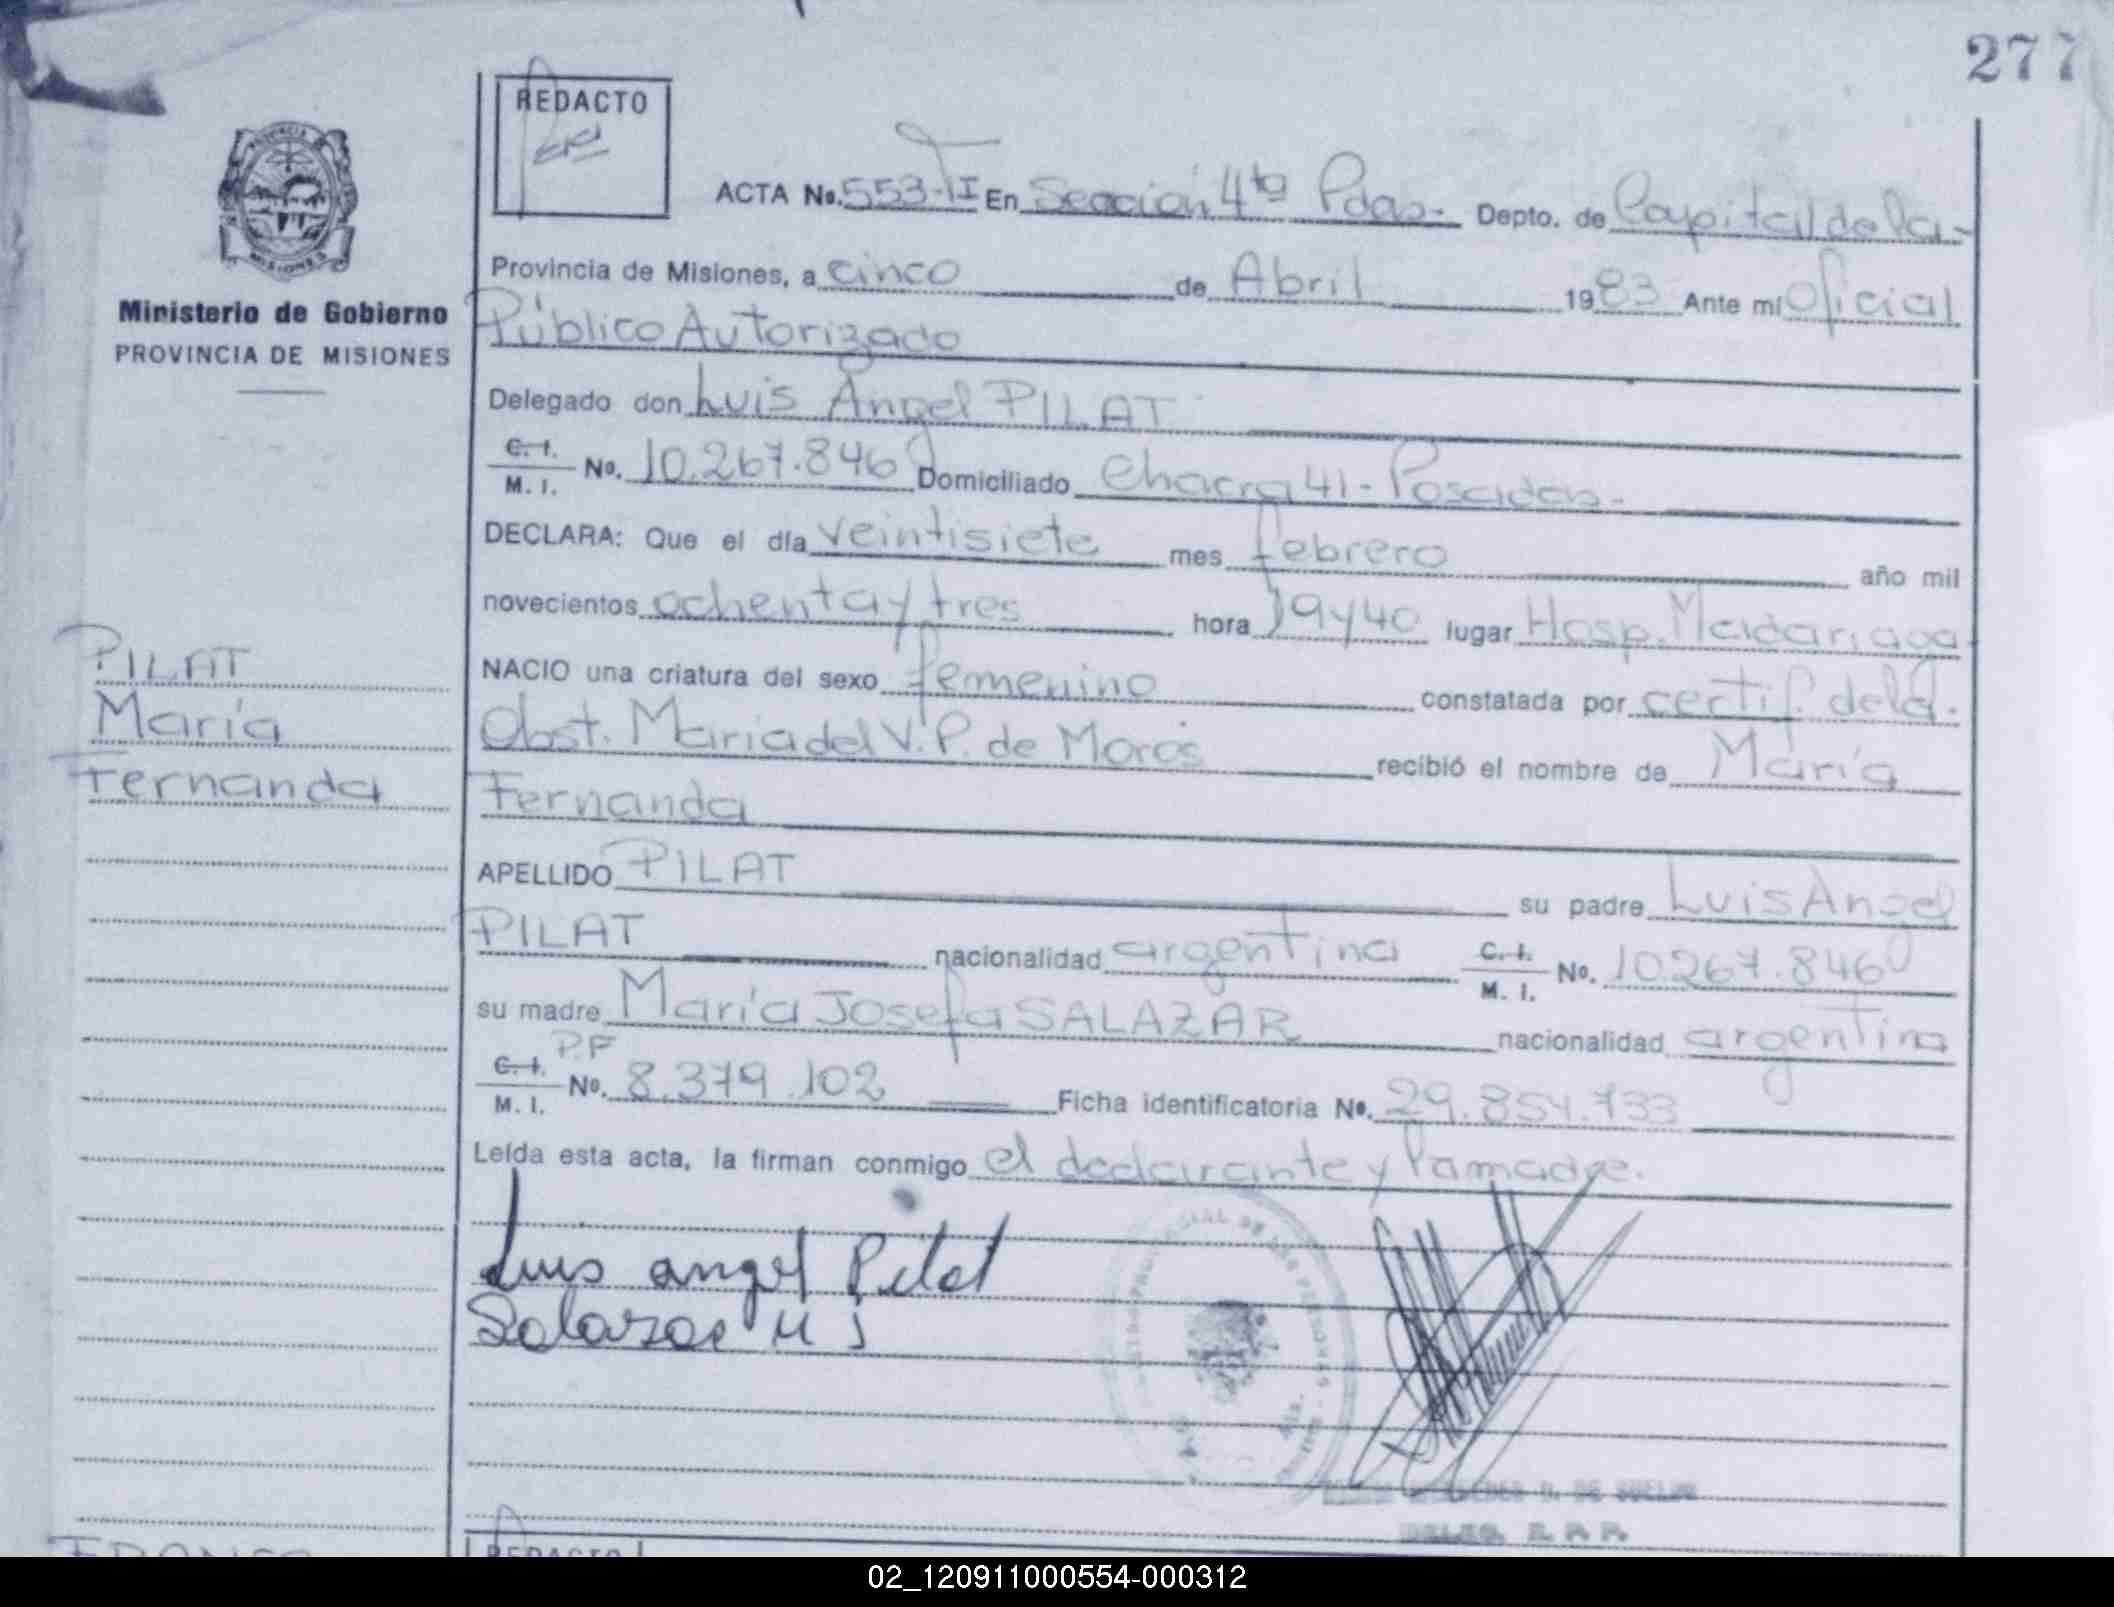 277
REDACTO
ACTA No. 553-TI En Sección 4ta Pdas.- Depto. de Capital de la-
Provincia de Misiones, a cinco de Abril 1983 Ante mi Oficial
Público Autorizado
Delegado don Luis Angel PILAT
C. I. M. I. No. 10.267.846 Domiciliado Chacra 41 - Posadas-
DECLARA: Que el día veintisiete mes febrero año mil
novecientos ochenta y tres hora 19y40 lugar Hosp. Madariaga
NACIO una criatura del sexo femenino constatada por certif. de la
Obst. Maria del V. P. de Moros recibió el nombre de María
Fernanda
APELLIDO PILAT su padre Luis Angel
PILAT nacionalidad argentina C. I. M. I. No. 10.267.846
su madre María Josefa SALAZAR nacionalidad argentina
C. I. P.F M. I. No. 8.379.102 Ficha identificatoria No. 29.854.733
Leída esta acta, la firman conmigo el declarante y la madre.
Luis angel Pilat
Salazar M J
Ministerio de Gobierno
PROVINCIA DE MISIONES
PILAT
María
Fernanda
REDACTO
02_120911000554-000312